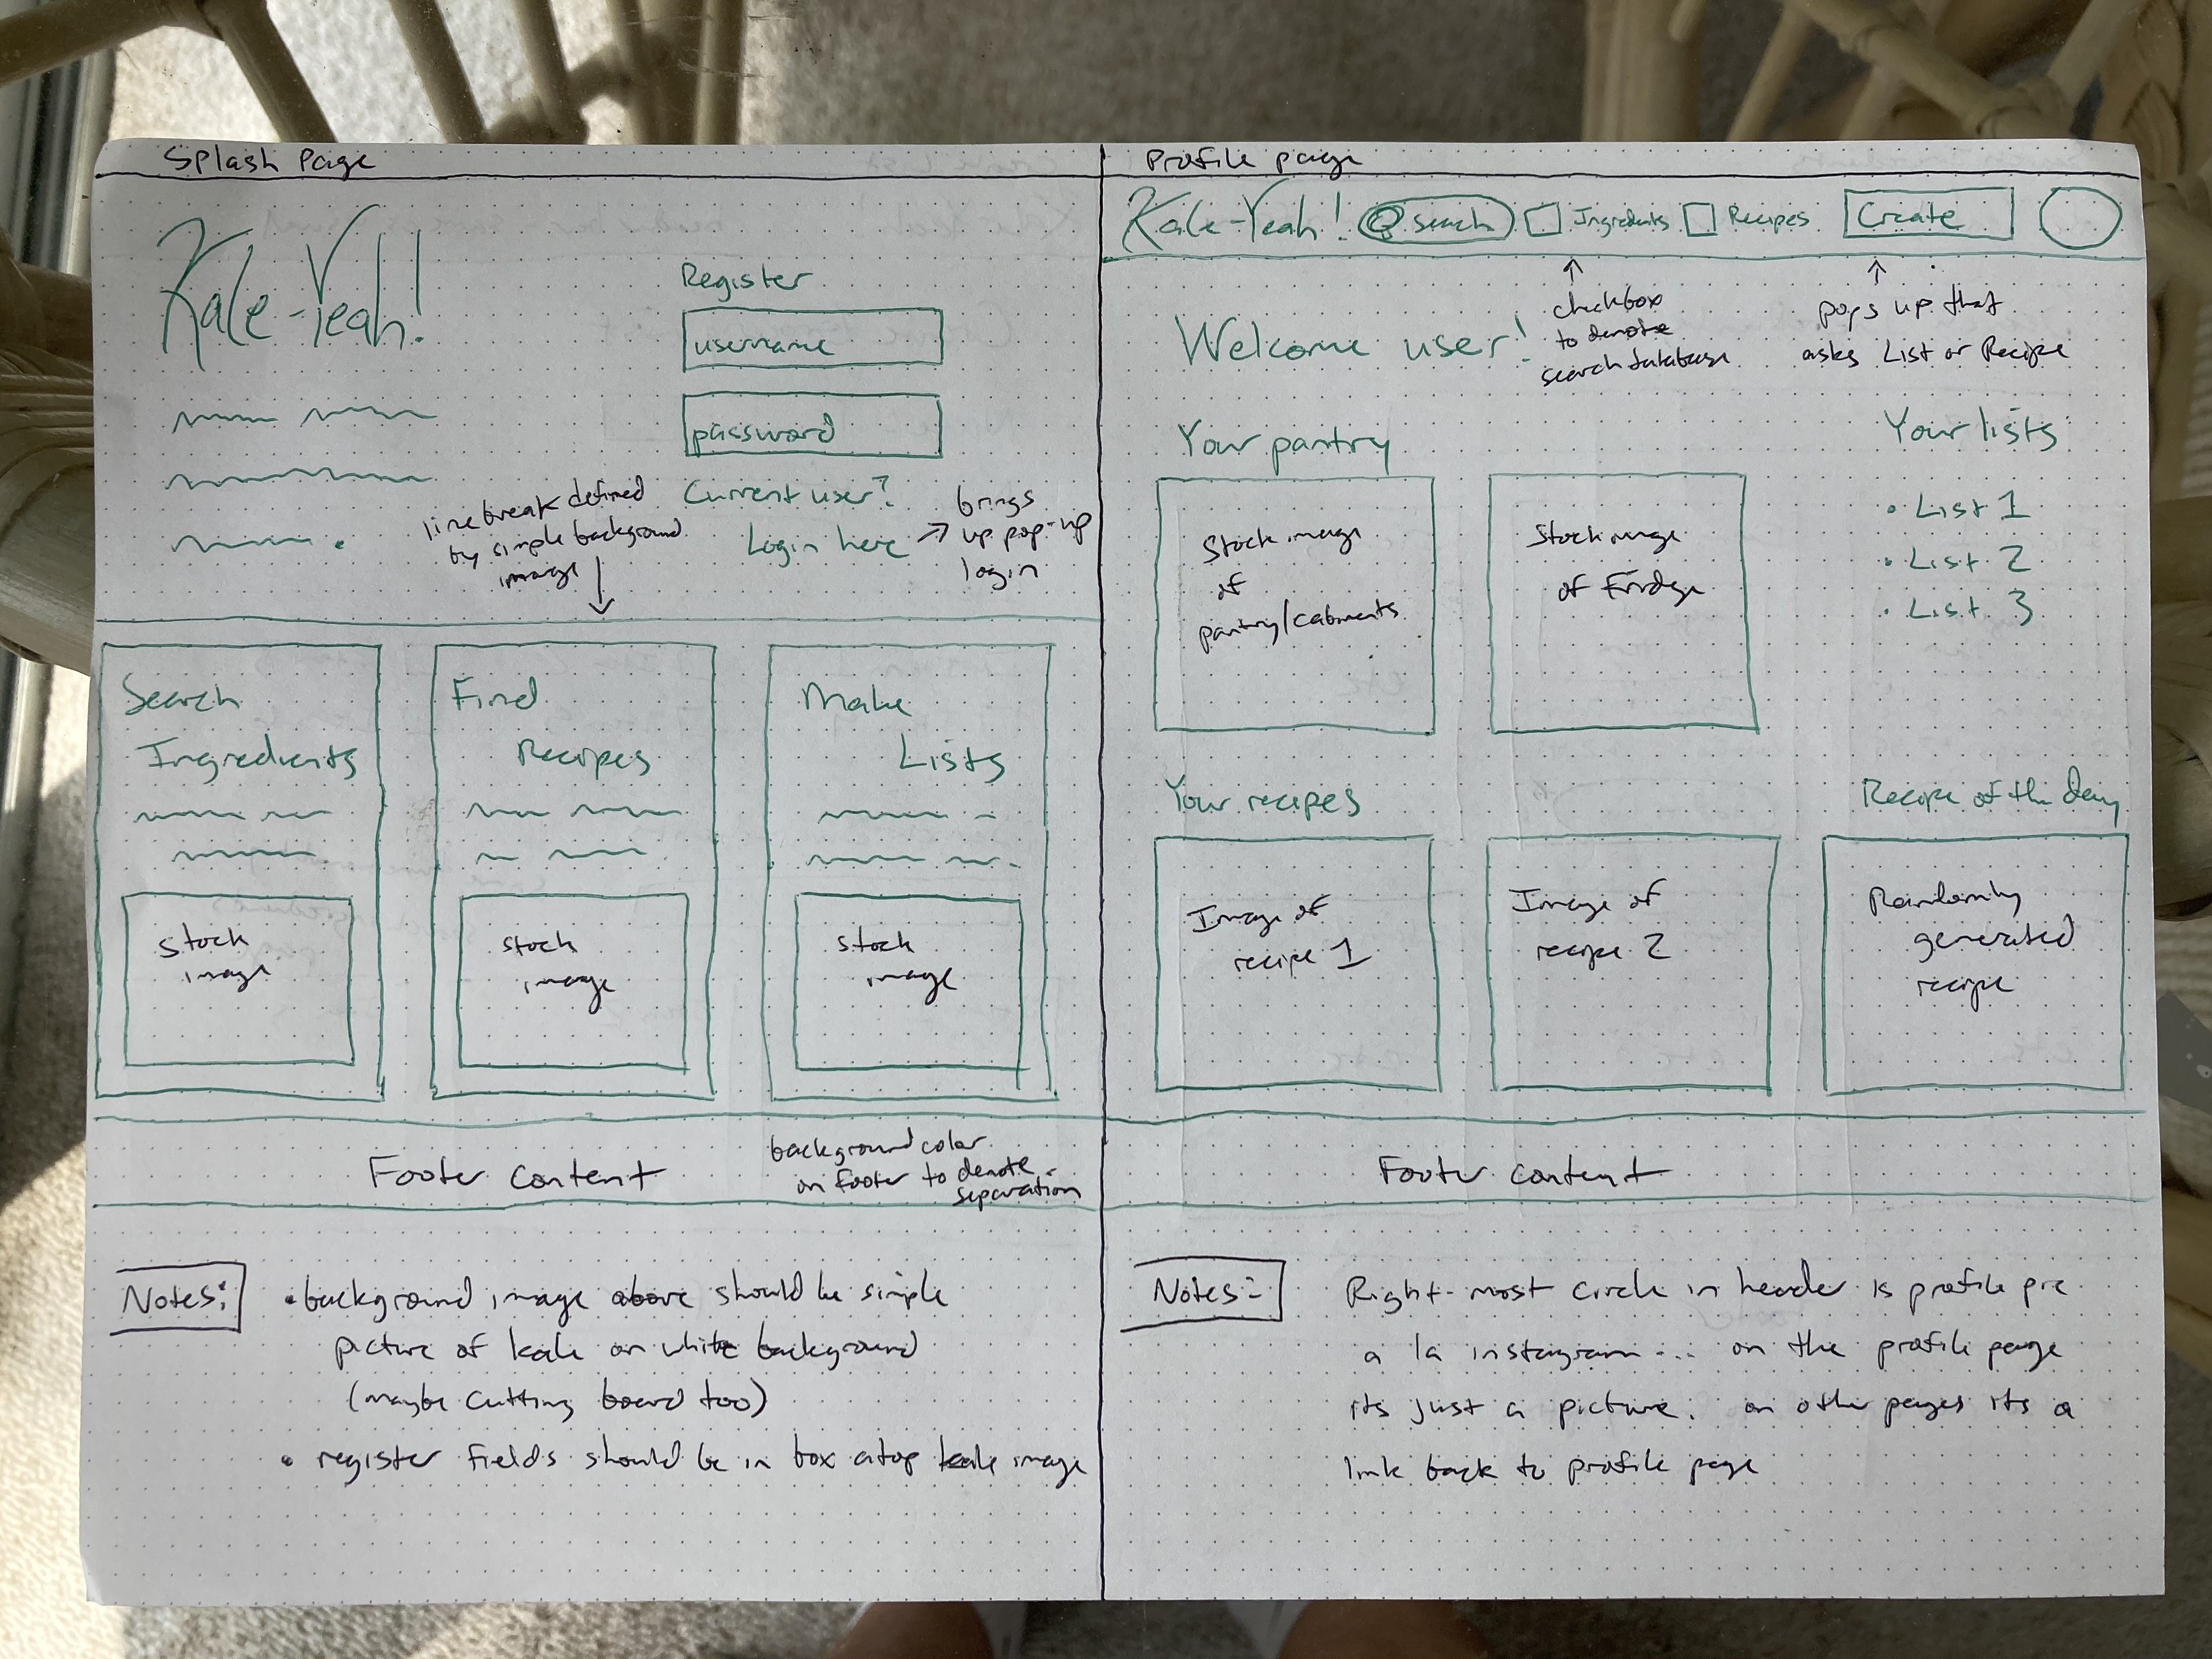 Splash Page
Kale-Yeah!
Register
username
password
Current user?
Login here
brings
up pop-up
login
line break defined
by simple background
image
Search
Ingredients
stock
image
Find
Recipes
stock
image
Make
Lists
stock
image
Footer Content
background color
on footer to denote
separation
Notes:
• background image above should be simple
picture of kale on white background
(maybe cutting board too)
• register fields should be in box atop kale image
Profile page
Kale-Yeah!
search
Ingredients
Recipes
Create
checkbox
to denote
search database
pops up that
asks List or Recipe
Welcome user!
Your pantry
Stock image
of
pantry/cabinents
Stock image
of Fridge
Your lists
• List 1
• List 2
• List 3
Your recipes
Image of
recipe 1
Image of
recipe 2
Recipe of the day
Randomly
generated
recipe
Footer content
Notes:
Right-most circle in header is profile pic
a la instagram... on the profile page
its just a picture. on other pages its a
link back to profile page